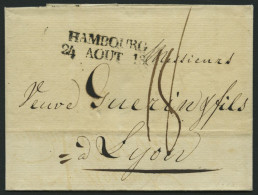 HAMBOURG
24 AOUT 18
Messieurs
Veuve Guerin & fils
= à Lyon